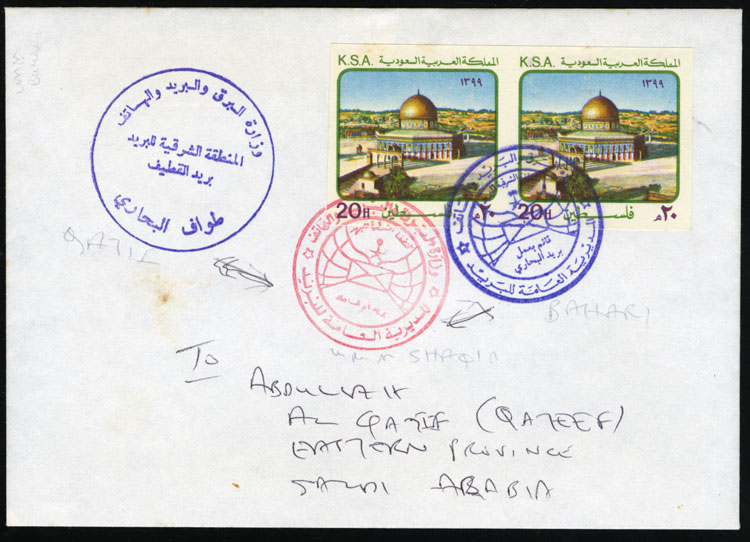 K.S.A. المملكة العربية السعودية
١٣٩٩
20H فلسطين ٢٠ م
K.S.A. المملكة العربية السعودية
١٣٩٩
20H فلسطين ٢٠ م
وزارة البرق والبريد والهاتف
المنطقة الشرقية للبريد
بريد القطيف
طواف البحاري
قائم بعمل
بريد البحاري
المديرية العامة للبريد
المديرية العامة للبريد
QATIF
BAHARI
To
AL QATIF (QATEEF)
EASTERN PROVINCE
SAUDI ARABIA